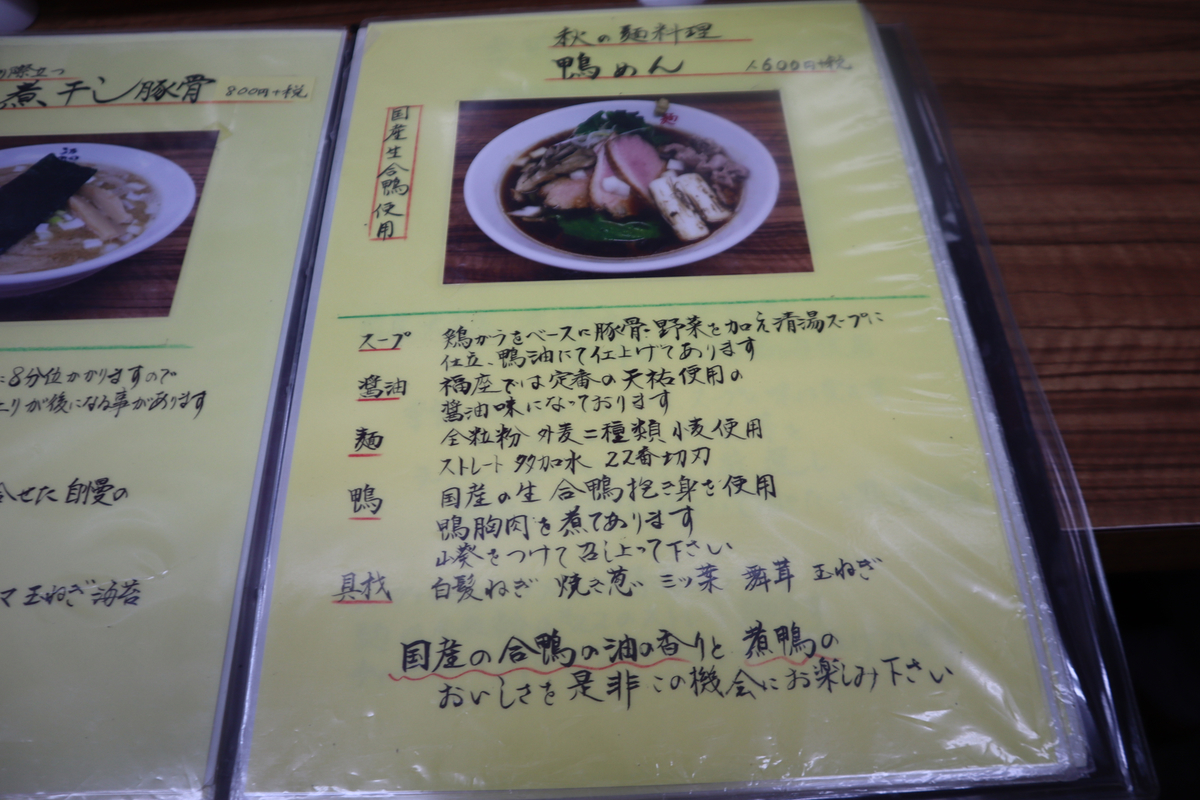 り際立つ
煮干し豚骨 800円+税
に8分位かかりますので
上りが後になる事があります
合せた自慢の
マ 玉ねぎ 海苔
秋の麺料理
鴨めん 1,600円+税
国産生合鴨使用
スープ 鶏がらをベースに豚骨・野菜を加え清湯スープに
仕立、鴨油にて仕上げてあります
醤油 福座では定番の天祐使用の
醤油味になっております
麺 全粒粉 外麦二種類 小麦使用
ストレート 多加水 22番切刃
鴨 国産の生合鴨抱き身を使用
鴨胸肉を煮てあります
山葵をつけて召し上って下さい
具材 白髪ねぎ 焼き葱 三ッ葉 舞茸 玉ねぎ
国産の合鴨の油の香りと 煮鴨の
おいしさを是非この機会にお楽しみ下さい